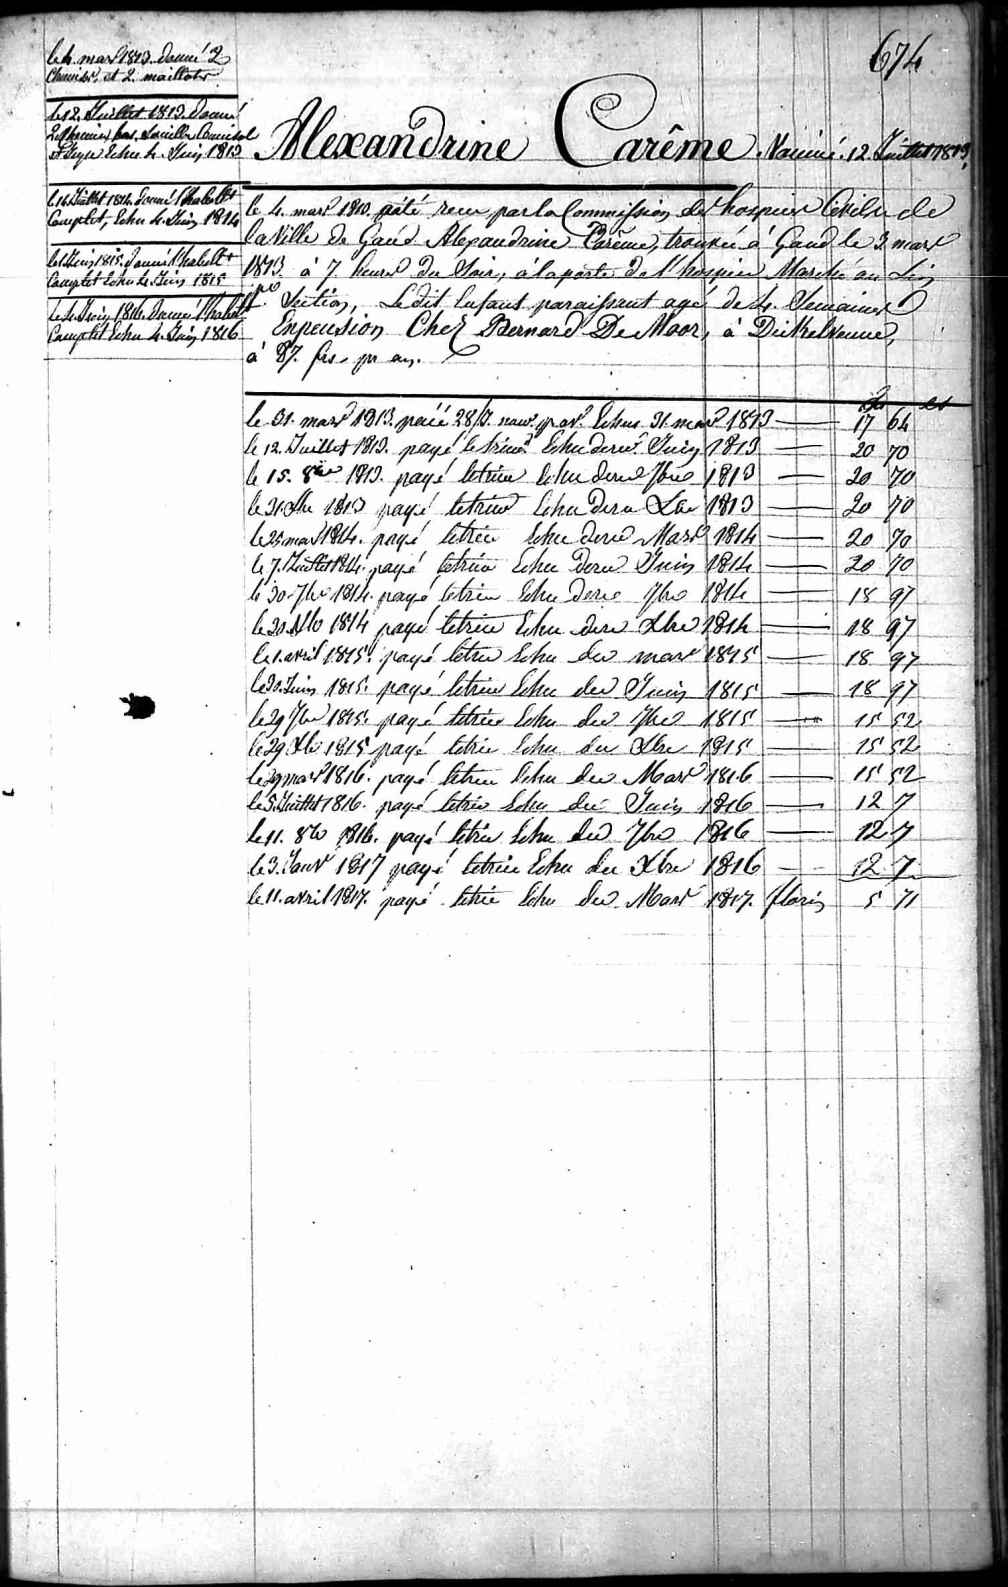 674
le 4. mars 1813. donné 2
Chemises et 2. maillots
le 12. Juillet 1813. donné
2 chemises, bas,
et Echu 4. Juin 1813
Alexandrine Carême. Vaciné. 12 Juillet 1813.
le 14 Juillet 1814. donné l'habellt
Complet, Echu 4. Juin 1814
le 1 Juin 1815. donné l'habellt
Complet Echu 4. Juin 1815
le 4. Juin 1816. donné l'habellt
Complet Echu 4. Juin 1816
le 4. mars 1813 été recu par la Commission des hospices Civils de
la Ville de Gand. Alexandrine Carême, trouvée à Gand le 3. mars
1813. à 7. heures du Soir, à la porte de l'hospice Marché au Lin
Section, Le dit Enfant paraissant agé de 4. Semaines
En pension Chez Bernard De Moor, à Dickelvenne,
à 87. frs. pr an.
le 31. mars 1813. paié 28/J. nour. Echus 31. mars 1813 — 17 64
le 12. Juillet 1813. payé le trimr Echu derr Juin 1813 — 20 70
le 15. 8bre 1813. payé letrim Echu derr 7bre 1813 — 20 70
le 31. Xbre 1813 payé letrim Echu derr Xbre 1813 — 20 70
le 25 mars 1814. payé letrim Echu derr Mars 1814 — 20 70
le 7. Juillet 1814. payé letrim Echu derr Juin 1814 — 20 70
le 30 7bre 1814. payé letrim Echu derr 7bre 1814 — 18 97
le 30. Xbre 1814 payé letrim Echu derr Xbre 1814 — 18 97
le 1. avril 1815. payé letrim Echu der mars 1815 — 18 97
le 30. Juin 1815. payé letrim Echu der Juin 1815 — 18 97
le 29 7bre 1815. payé letrim Echu der 7bre 1815 — 15 52
le 29 Xbre 1815 payé letrim Echu der Xbre 1815 — 15 52
le 29 mars 1816. payé letrim Echu der Mars 1816 — 15 52
le 5. Juillet 1816. payé letrim Echu der Juin 1816 — 12 7
le 11. 8bre 1816. payé letrim Echu der 7bre 1816 — 12 7
le 3. Janv 1817 payé letrim Echu der Xbre 1816 — 12 7
le 11. avril 1817. payé letrim Echu der Mars 1817. florins 5 71